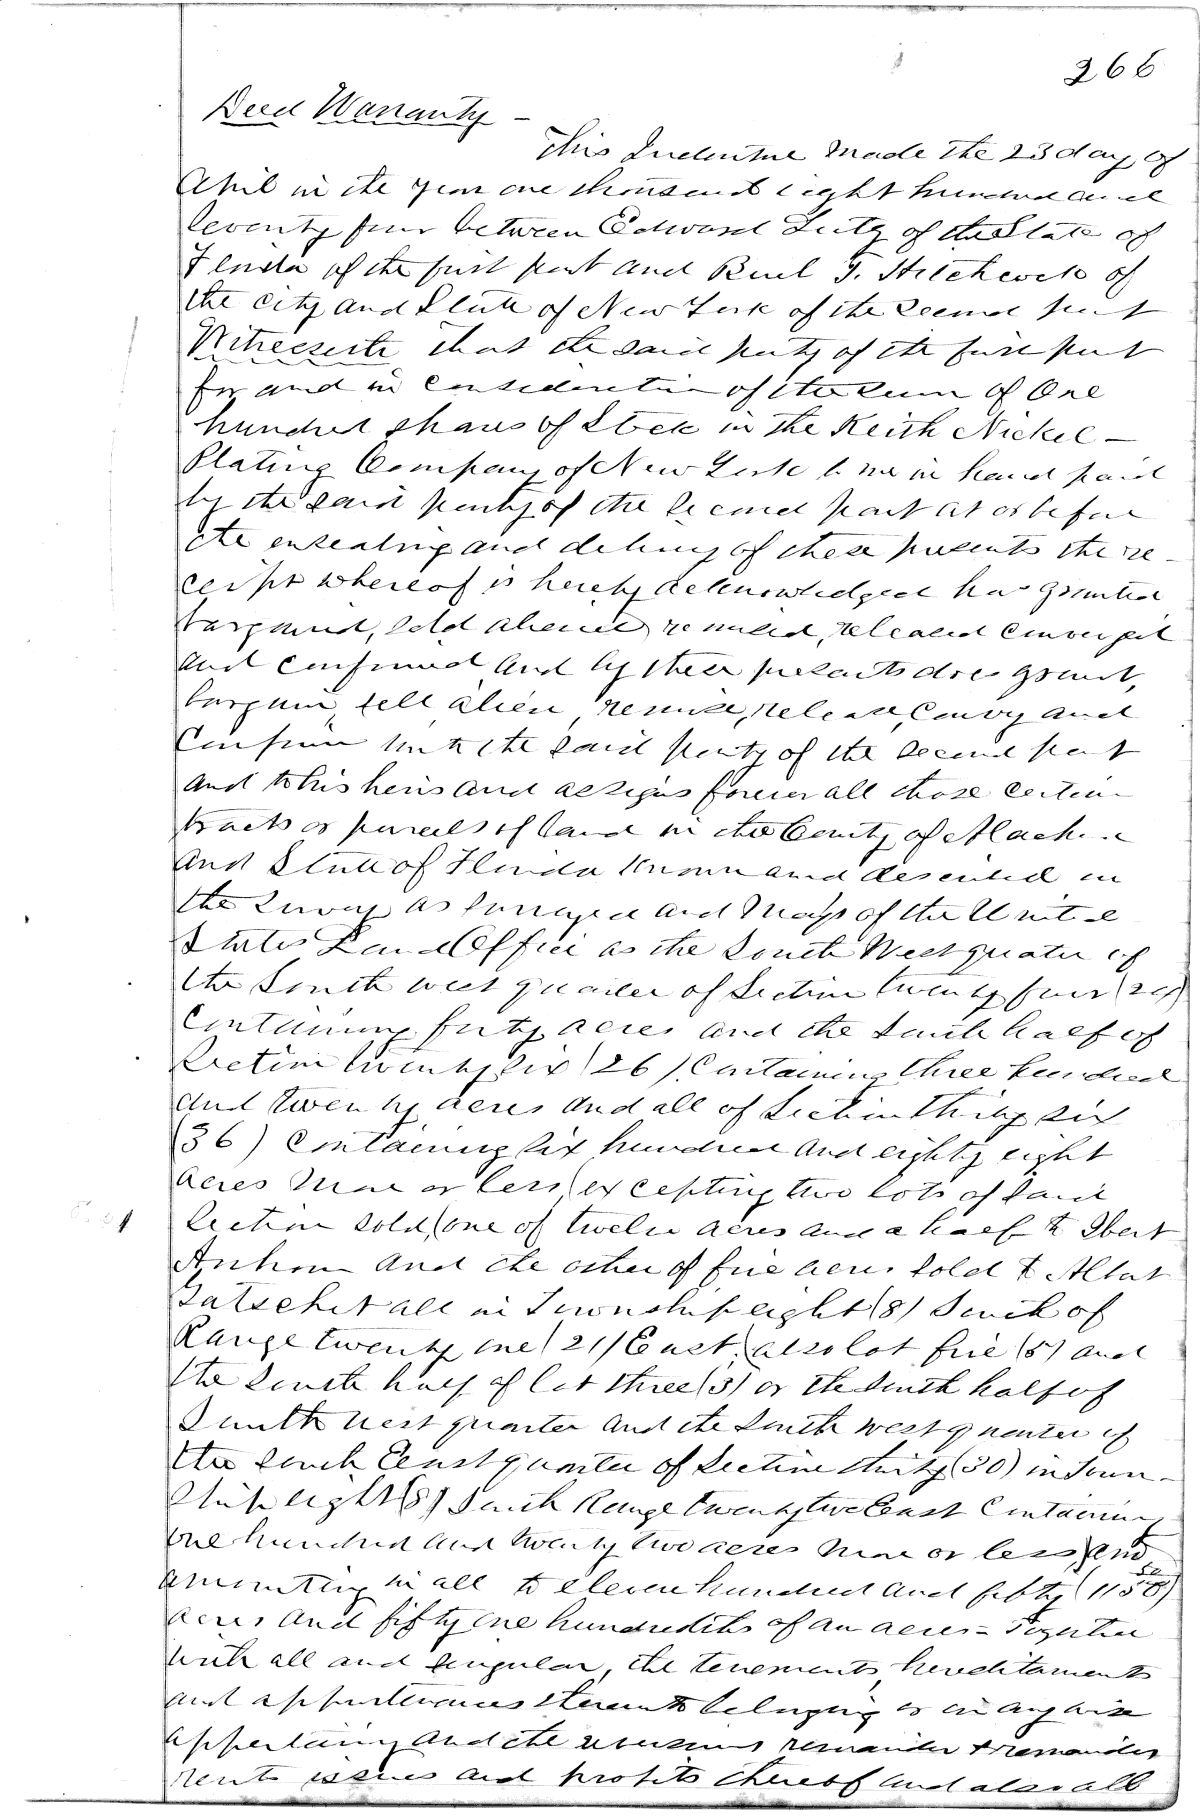 266
Deed Warranty -
This Indenture made the 23 day of
April in the year one thousand eight hundred and
seventy four between Edward Lutz of the State of
Florida of the first part and Buel T. Hitchcock of
the city and State of New York of the second part
Witnesseth That the said party of the first part
for and in consideration of the sum of One
hundred shares of Stock in the Keith Nickel -
Plating Company of New York to me in hand paid
by the said party of the second part at or before
the ensealing and delivery of these presents the re-
ceipt whereof is hereby acknowledged has granted
bargained, sold aliened remised, released conveyed
and confirmed and by these presents does grant,
bargain, sell alien, remise, release, convey and
Confirm unto the said party of the second part
and to his heirs and assigns forever all those certain
tracts or parcels of land in the County of Alachua
and State of Florida Known and described in
the Survey as surveyed and Maps of the United
States Land Office as the South West quarter of
the South west quarter of Section twenty four (24)
Containing forty acres and the South half of
Section twenty six (26) Containing three hundred
and twenty acres and all of Section thirty six
(36) Containing six hundred and eighty eight
acres more or less, (excepting two lots of said
Section sold, (one of twelve acres and a half to
and the other of five acres sold to Albert
Gatschet all in Township eight (8) South of
Range twenty one (21) East, (also lot five (5) and
the South half of lot three (3) or the South half of
South west quarter and the South west quarter of
the South East quarter of Section thirty (30) in Town-
ship eight (8) South Range twenty two East Containing
one hundred and twenty two acres more or less) and
amounting in all to eleven hundred and fifty (1150)
acres and fifty one hundredths of an acres - Together
with all and singular, the tenements, hereditaments
and appurtenances thereunto belonging or in any wise
appertaining and the reversions remainder & remainders
rents issues and profits thereof and also all